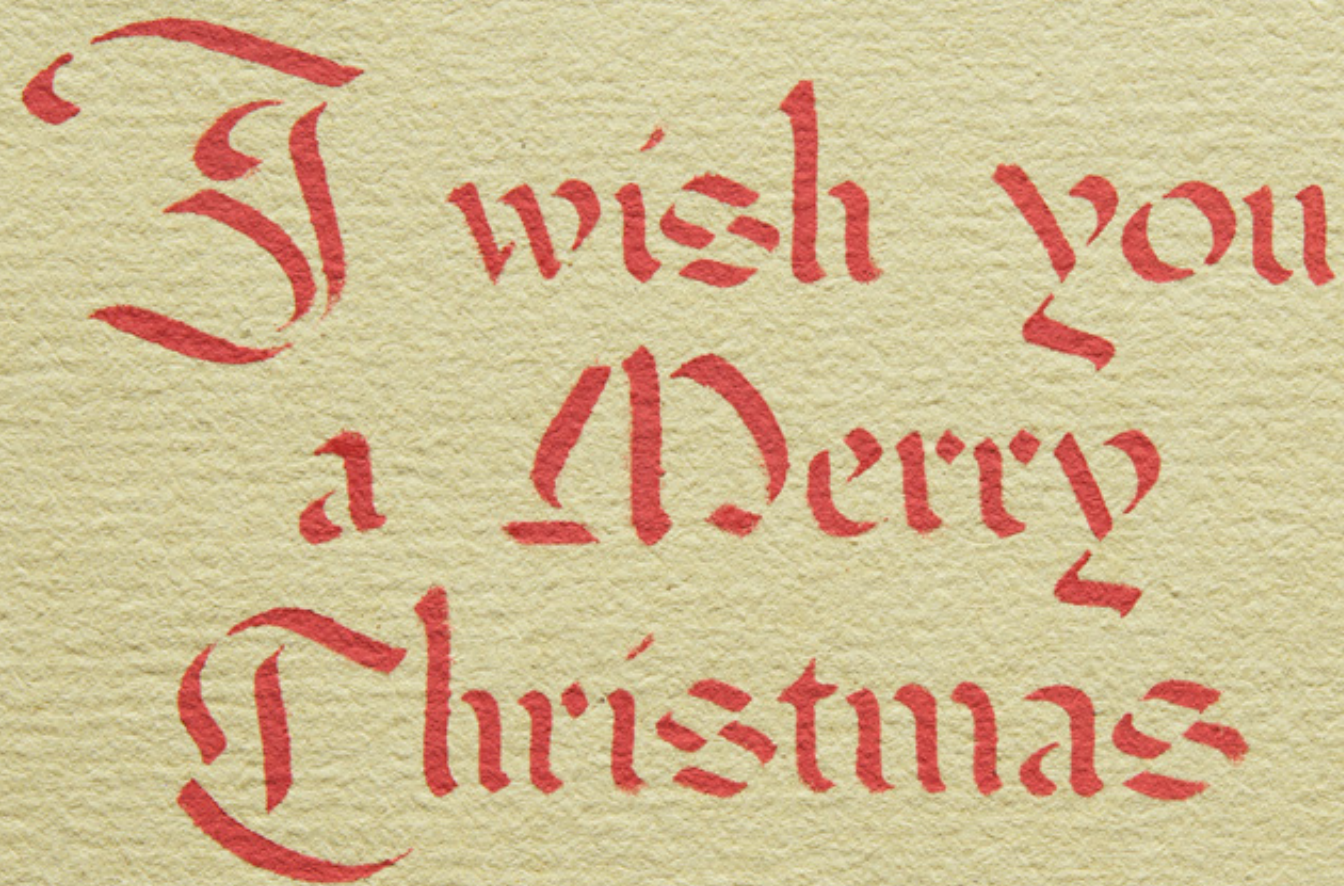 I wish you
a Merry
Christmas